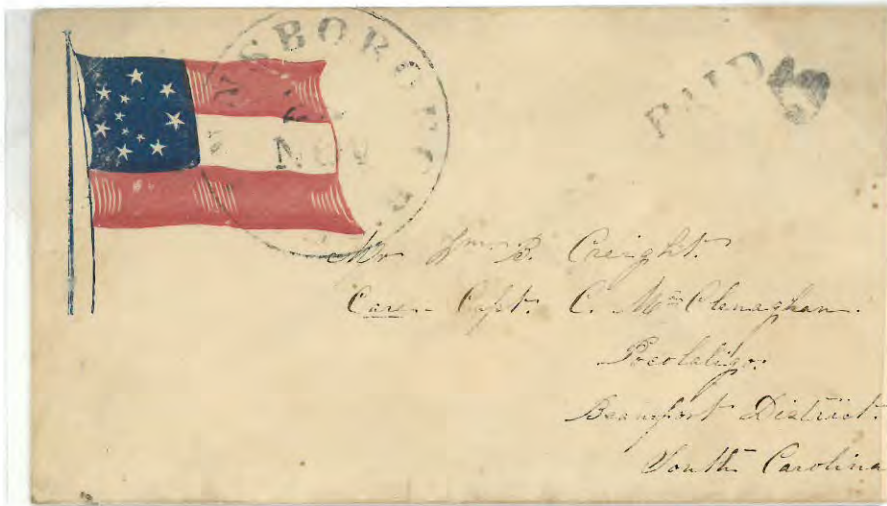 NSBORO
NOV
PAID
Mr Jm. B. Creight.
Care- Capt. C. McClenaghan.
Pocotaligo.
Beaufort District.
South Carolina